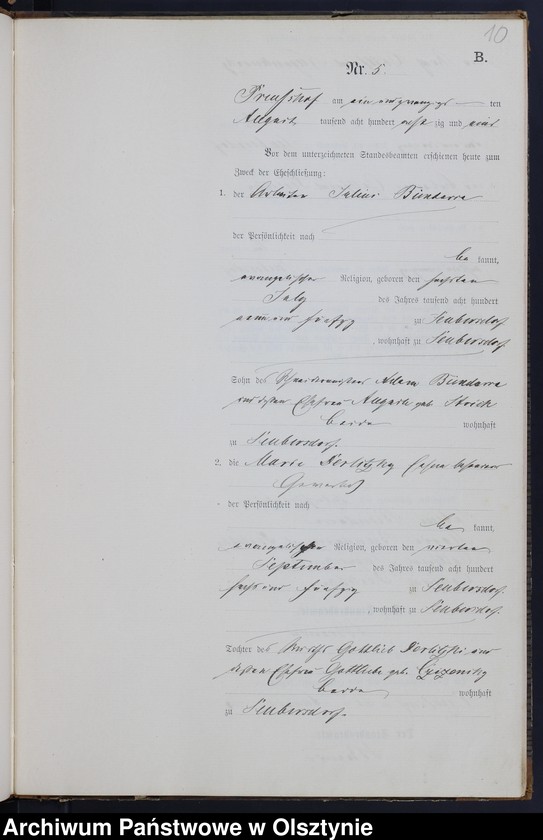 10
B.
Nr. 5.
am ein und zwanzigsten
August tausend acht hundert acht zig und eins
Vor dem unterzeichneten Standesbeamten erschienen heute zum
Zweck der Eheschließung:
1. der Arbeiter Julius Bundarra
der Persönlichkeit nach
be kannt,
evangelischer Religion, geboren den sechsten
July des Jahres tausend acht hundert
neun und fünfzig zu Seubersdorf
, wohnhaft zu Seubersdorf
Sohn des Adam Bundarra
und dessen Ehefrau geb.
beide wohnhaft
zu Seubersdorf.
2. die Marie
der Persönlichkeit nach
be kannt,
evangelischer Religion, geboren den vierten
September des Jahres tausend acht hundert
sechs und fünfzig zu Seubersdorf
, wohnhaft zu Seubersdorf.
Tochter des Gottlieb und
dessen Ehefrau Gottliebe geb.
beide wohnhaft
zu Seubersdorf.
Archiwum Państwowe w Olsztynie